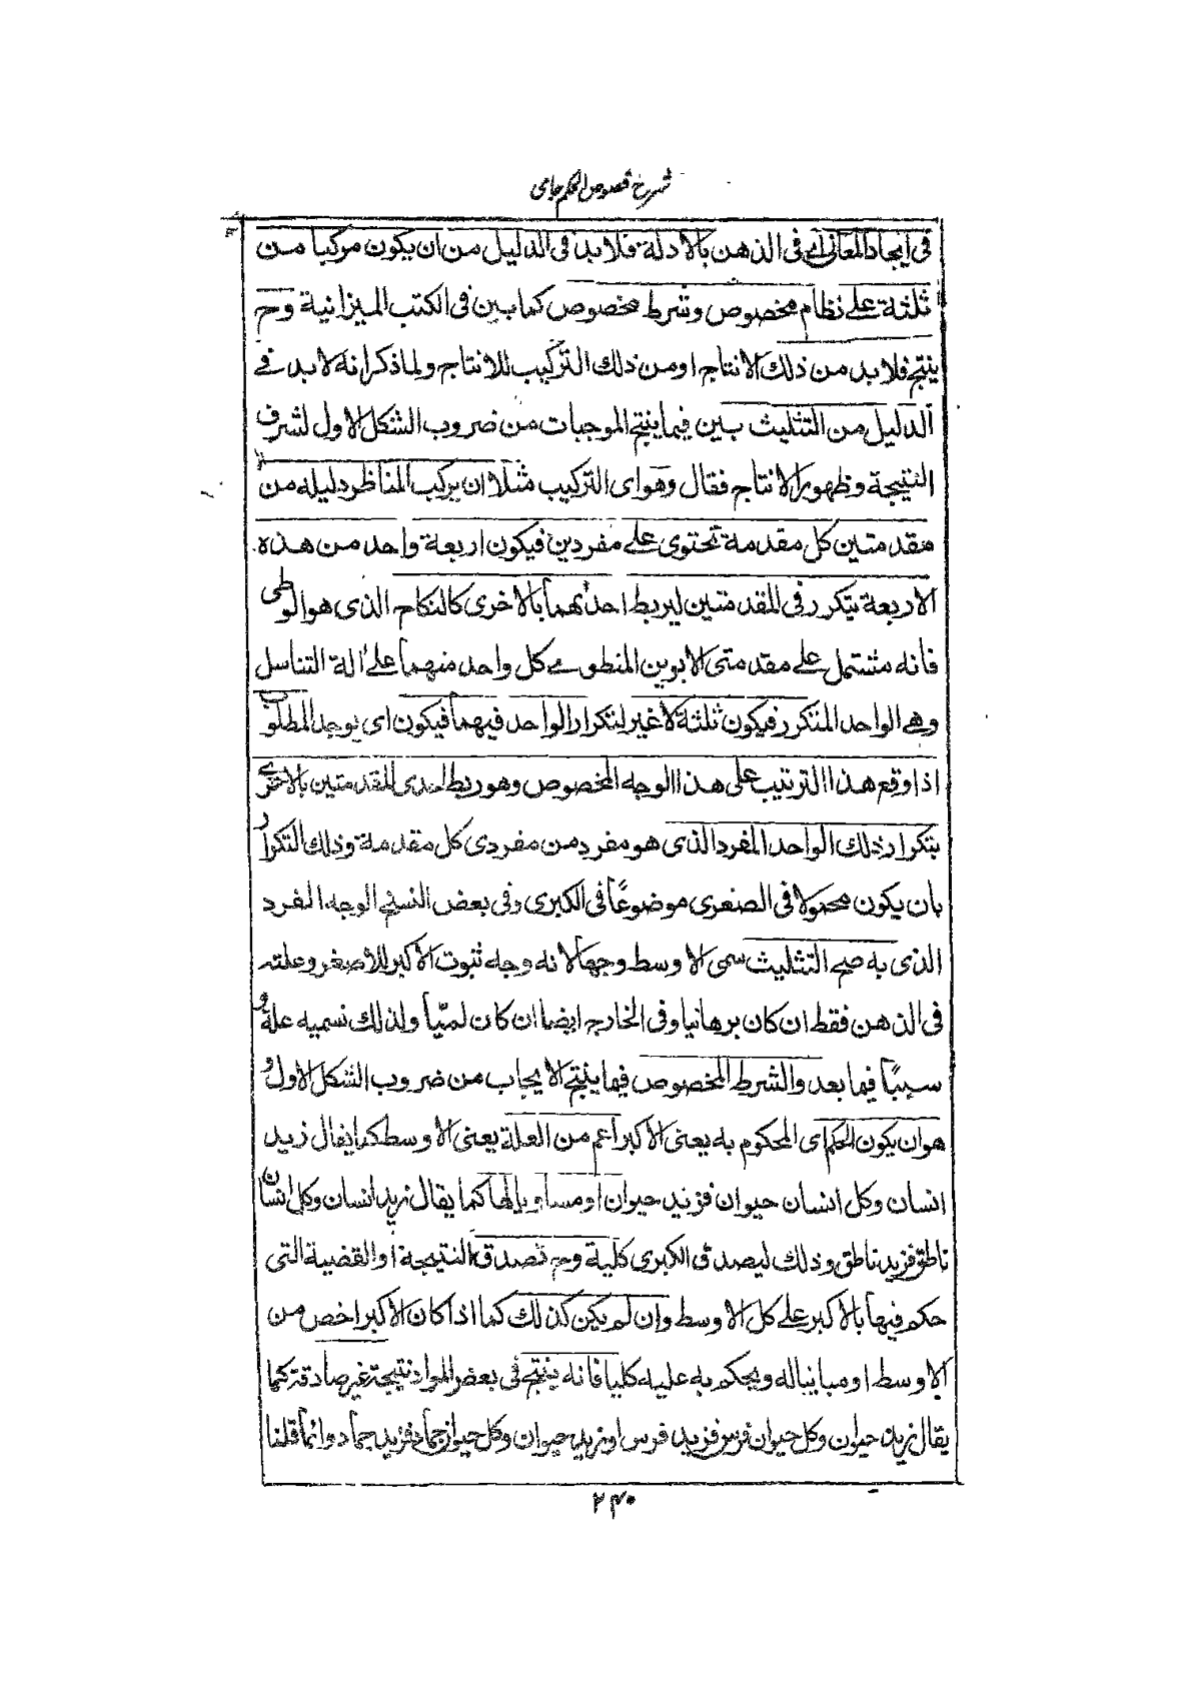 شرح فصوص الحكم جامى
فى ايجاد المعانى اى فى الذهن بالادلة فلابد فى الدليل من ان يكون مركبا من
ثلثة على نظام مخصوص وشرط مخصوص كما بين فى الكتب الميزانية وح
ينتج فلابد من ذلك الانتاج او من ذلك التركيب للانتاج ولما ذكر انه لابد فى
الدليل من التثليث بين فيما ينتج الموجبات من ضروب الشكل الاول لشرف
النتيجة وظهور الانتاج فقال وهو اى التركيب مثلا ان يركب المناظر دليله من
مقدمتين كل مقدمة تحتوى على مفردين فيكون اربعة واحد من هذه
الاربعة يتكرر فى المقدمتين ليربط احدٰهما بالاخرى كالنكاح الذى هو الوطى
فانه مشتمل على مقدمتى الابوين المنطوى كل واحد منهما على الة التناسل
وهى الواحد المتكرر فيكون ثلثة لاغير لتكرار الواحد فيهما فيكون اى يوجد المطلوب
اذا وقع هذا الترتيب على هذا الوجه المخصوص وهو ربط احدى المقدمتين بالاخرى
بتكرار ذلك الواحد المفرد الذى هو مفرد من مفردى كل مقدمة وذلك التكرار
بان يكون محمولا فى الصغرى موضوعًا فى الكبرى وفى بعض النسخ الوجه المفرد
الذى به صح التثليث سمى الاوسط وجها لانه وجه ثبوت الاكبر للاصغر وعلته
فى الذهن فقط ان كان برهانيا وفى الخارج ايضا ان كان لميّاً ولذلك نسميه علة و
سببًا فيما بعد والشرط المخصوص فيما ينتج الايجاب من ضروب الشكل الاول و
هو ان يكون الحكم اى المحكوم به يعنى الاكبر اعم من العلة يعنى الاوسط كما يقال زيد
انسان وكل انسان حيوان فزيد حيوان او مساويا لها كما يقال زيد انسان وكل انسان
ناطق فزيد ناطق وذلك ليصدق الكبرى كلية وح تصدق النتيجة او القضية التى
حكم فيها بالاكبر على كل الاوسط وان لم يكن كذلك كما اذا كان الاكبر اخص من
الاوسط او مباينا له ويحكم به عليه كليا فانه ينتج فى بعض المواد نتيجة غير صادقة كما
يقال زيد حيوان وكل حيوان فرس فزيد فرس او زيد حيوان وكل حيوان جماد فزيد جماد وانما قلنا
۲۴۰